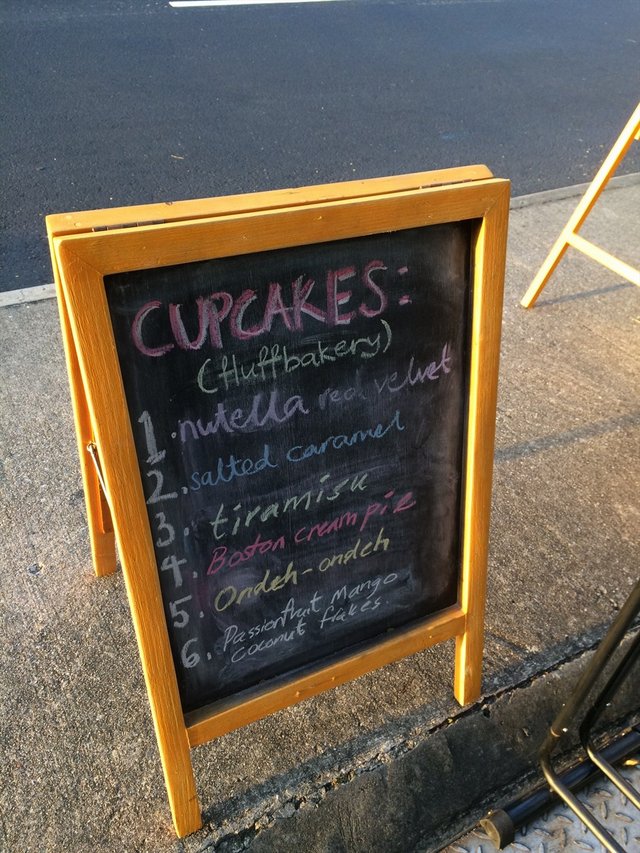 CUPCAKES:
(fluffbakery)
1. nutella red velvet
2. salted caramel
3. tiramisu
4. Boston cream pie
5. Ondeh-ondeh
6. Passionfruit Mango
coconut flakes.